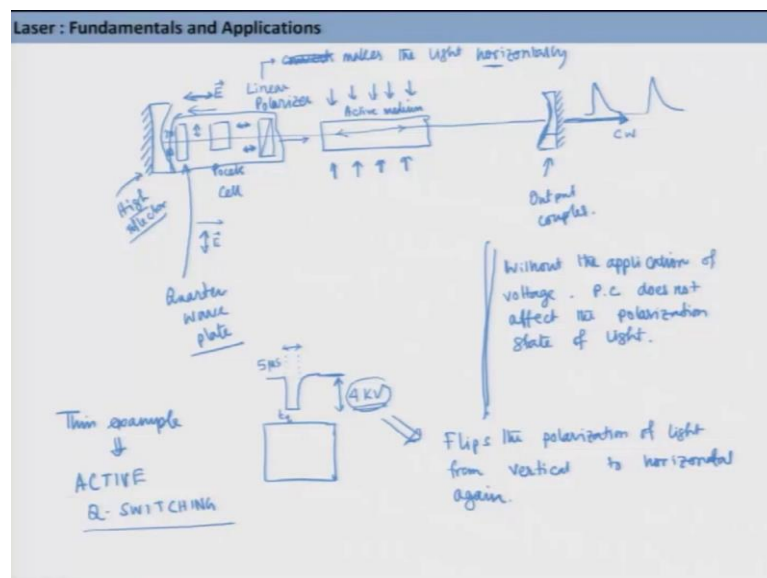 Laser : Fundamentals and Applications
makes the light horizontally
E
Linear
Polarizer
Active medium
CW
Pockels
Cell
High
reflector
E
Output
coupler.
Quarter
wave
plate
Without the application of
voltage . P.C does not
affect the polarization
state of light.
5 µs
4 KV
t
This example
ACTIVE
Q-SWITCHING
Flips the polarization of light
from vertical to horizontal
again.